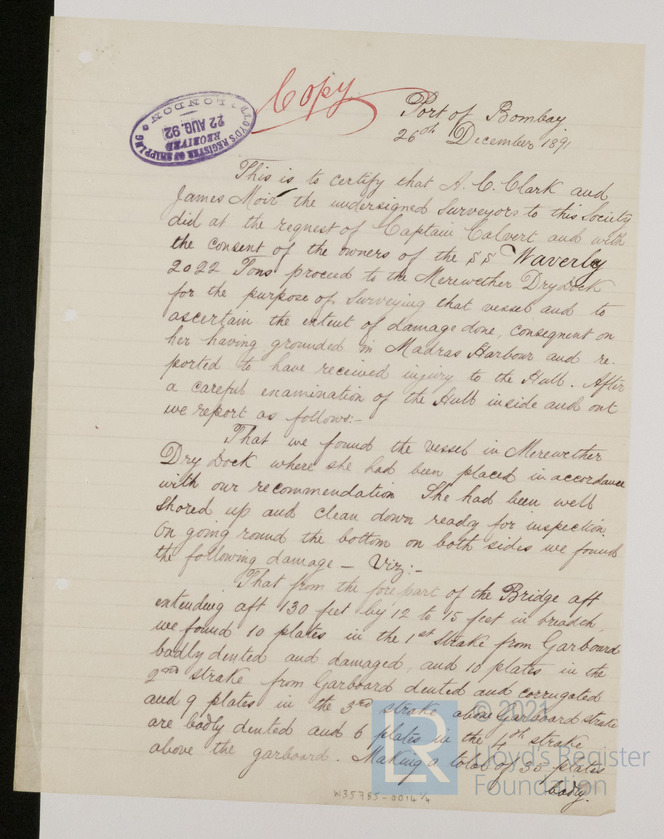 Copy
LLOYD'S REGISTER OF SHIPPING
RECEIVED
22 AUG. 92
LONDON
Port of Bombay
26th December 1891
This is to certify that A. C. Clark and
James Moir the undersigned Surveyors to this Society
did at the request of Captain Calvert and with
the consent of the owners of the SS Waverly
2022 Tons proceed to the Merewether Drydock
for the purpose of Surveying that vessel and to
ascertain the extent of damage done, consequent on
her having grounded in Madras Harbour and re-
ported to have received injury to the Hull. After
a careful examination of the Hull inside and out
we report as follows:-
That we found the vessel in Merewether
Dry Dock where she had been placed in accordance
with our recommendation She had been well
Shored up and clean down ready for inspection.
On going round the bottom on both sides we found
the following damage - Viz:-
That from the fore part of the Bridge aft
extending aft 130 feet by 12 to 15 feet in breadth,
we found 10 plates in the 1st Strake from Garboard
badly dented and damaged, and 10 plates in the
2nd strake from Garboard dented and corrugated
and 9 plates in the 3rd strake above Garboard Strake
are badly dented and 6 plates in the 4th strake
above the garboard. Making a total of 36 plates
badly.
W35785-0014 1/4
© 2021
LR
Lloyd's Register
Foundation